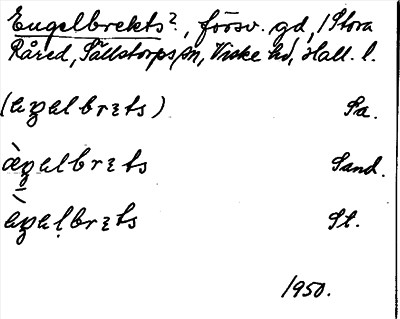 Engelbrekts?, försv. gd, i Stora
Råred, Sällstorps sn, Viske hd, Hall. l.
Sa.
Sand.
St.
1950.